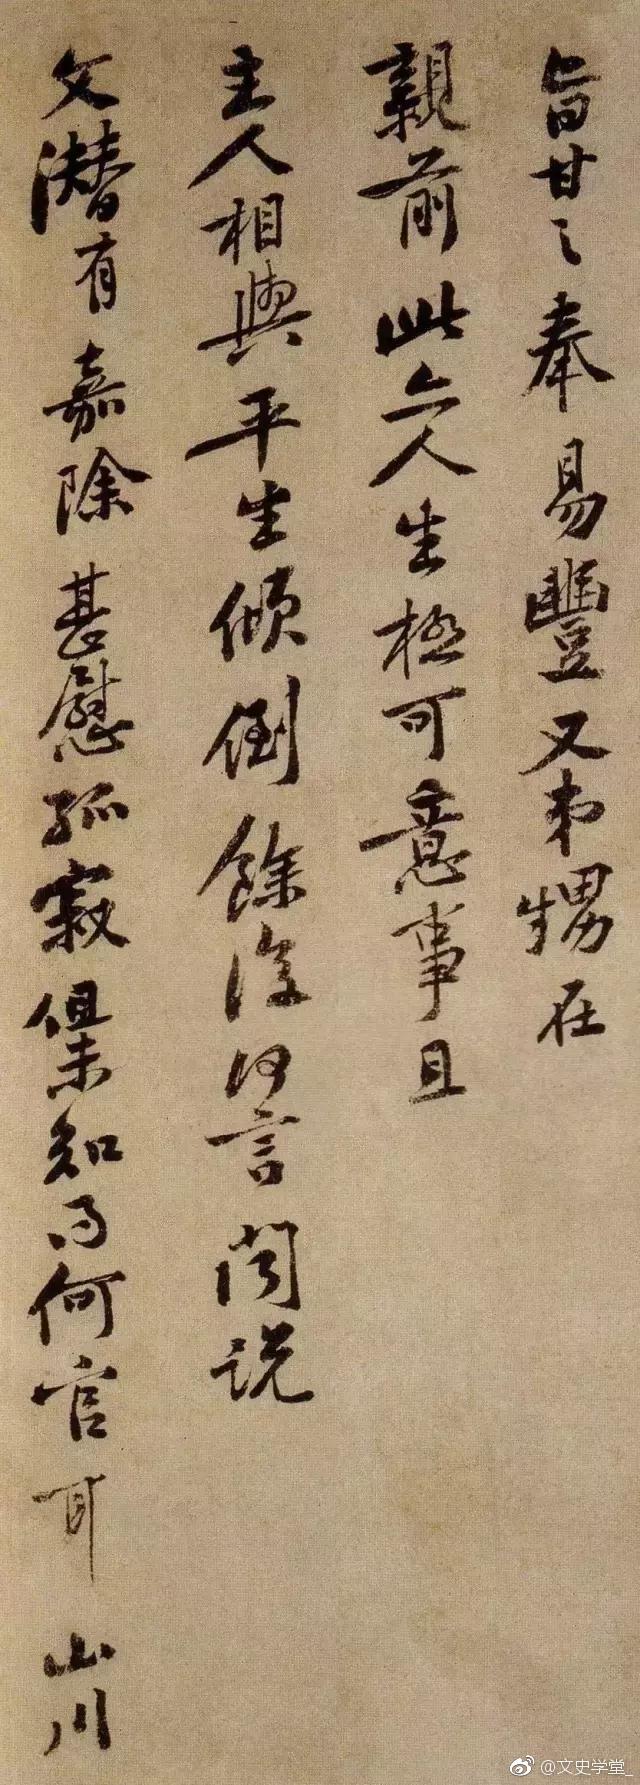 旨甘之奉易豐又弟甥在
親前此亦人生極可意事且
主人相與平生傾倒餘復何言聞說
文潛有嘉除甚慰孤寂但未知得何官耳山川
@文史学堂_